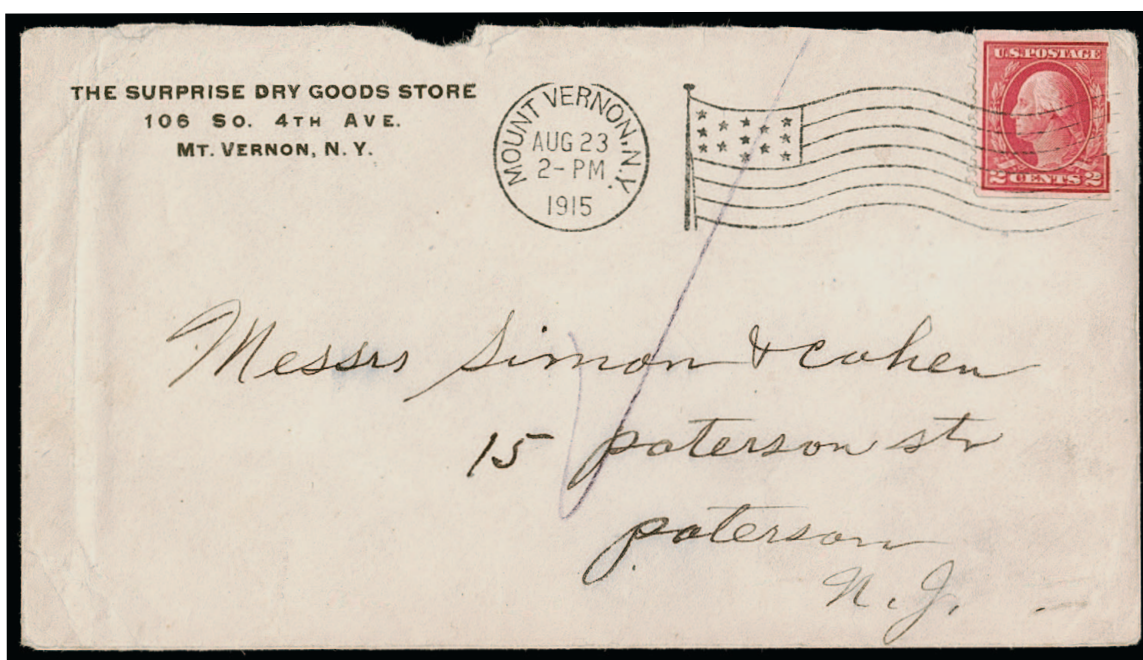 THE SURPRISE DRY GOODS STORE
106 SO. 4TH AVE.
MT. VERNON, N. Y.
MOUNT VERNON, N.Y.
AUG 23
2-PM
1915
U.S. POSTAGE
2 CENTS 2
Messrs Simon & Cohen
15 paterson str
paterson
N. J.